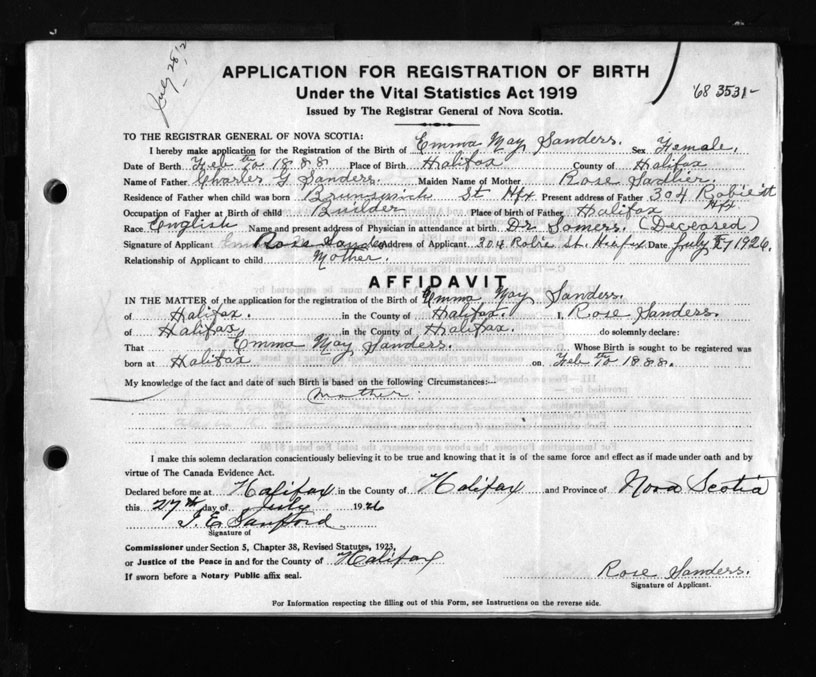 July 28/2
APPLICATION FOR REGISTRATION OF BIRTH
'68 3531-
Under the Vital Statistics Act 1919
Issued by The Registrar General of Nova Scotia.
TO THE REGISTRAR GENERAL OF NOVA SCOTIA:
I hereby make application for the Registration of the Birth of Emma May Sanders. Sex Female.
Date of Birth Feb 1888 Place of Birth Halifax County of Halifax
Name of Father Charles G Sanders. Maiden Name of Mother Rose Sadlier.
Residence of Father when child was born Brunswick St Hfx. Present address of Father 304 Robie st Hfx
Occupation of Father at Birth of child Builder Place of birth of Father Halifax
Race English Name and present address of Physician in attendance at birth Dr Somers. (Deceased)
Signature of Applicant Rose Sanders Address of Applicant 304 Robie St. Halifax Date July 27 1926.
Relationship of Applicant to child Mother.
AFFIDAVIT
IN THE MATTER of the application for the registration of the Birth of Emma May Sanders.
of Halifax. in the County of Halifax. I, Rose Sanders.
of Halifax in the County of Halifax. do solemnly declare:
That Emma May Sanders. Whose Birth is sought to be registered was
born at Halifax on Feb 1888.
My knowledge of the fact and date of such Birth is based on the following Circumstances:—
Mother.
I make this solemn declaration conscientiously believing it to be true and knowing that it is of the same force and effect as if made under oath and by
virtue of The Canada Evidence Act.
Declared before me at Halifax in the County of Halifax and Province of Nova Scotia
this 27th day of July 1926
J. E. Sanford.
Signature of
Commissioner under Section 5, Chapter 38, Revised Statutes, 1923,
or Justice of the Peace in and for the County of Halifax
If sworn before a Notary Public affix seal.
Rose Sanders.
Signature of Applicant.
For Information respecting the filling out of this Form, see Instructions on the reverse side.